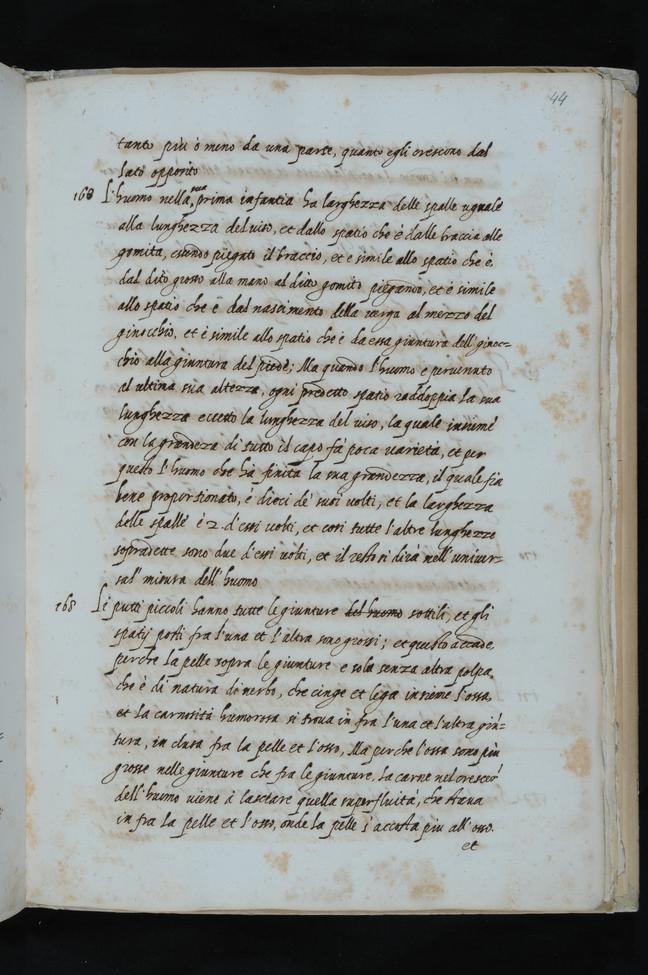 44
tanto più ò meno da una parte, quanto egli crescono dal
lato opposito
168 L'huomo nella sua prima infantia ha larghezza delle spalle uguale
alla lunghezza del viso, et dallo spatio che è dalle braccia alle
gomita, essendo piegato il braccio, et è simile allo spatio che è
dal dito grosso alla mano al dito gomito piegando, et è simile
allo spatio che è dal nascimento della verga al mezzo del
ginocchio, et è simile allo spatio che è da essa giuntura dell ginoc=
chio alla giuntura del piede; Ma quando l'huomo e pervenuto
al ultima sua altezza, ogni predetto spatio raddoppia la sua
lunghezza eccetto la lunghezza del viso, la quale insieme
con la grandeza di tutto il capo fa poca varietà, et per
questo l'huomo che hà finita la sua grandezza, il quale sia
bene proportionato, è dieci de' suoi volti, et la larghezza
delle spalle è 2. d'essi volti, et cosi tutte l'altre lunghezze
sopradette sono due d'essi volti, et il resto si dirà nell' univer=
sal' misura dell' huomo
168 Li putti piccoli hanno tutte le giunture del huomo sottili, et gli
spatij posti fra l'una et l'altra sono grossi; et questo accade,
perche la pelle sopra le giunture e sola senza altra polpa,
che è di natura di nerbo, che cinge et lega insieme l'ossa
et la carnosità humorosa si trova in fra l'una et l'altra gi'n=
tura, in clusa fra la pelle et l'osso, Ma perche l'ossa sono più
grosse nelle giunture che fra le giunture, la carne nel crescer'
dell' huomo viene à lasciare quella superfluità, che stava
in fra la pelle et l'osso, onde la pelle s'accosta piu all' osso.
et